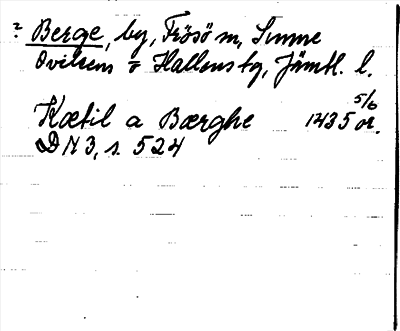 ? Berge, by, Frösö sn, Sunne
Ovikens o Hallens tg, Jämtl. l.
5/6
Kætil a Bærghe 1435 or.
DN 3, s. 524